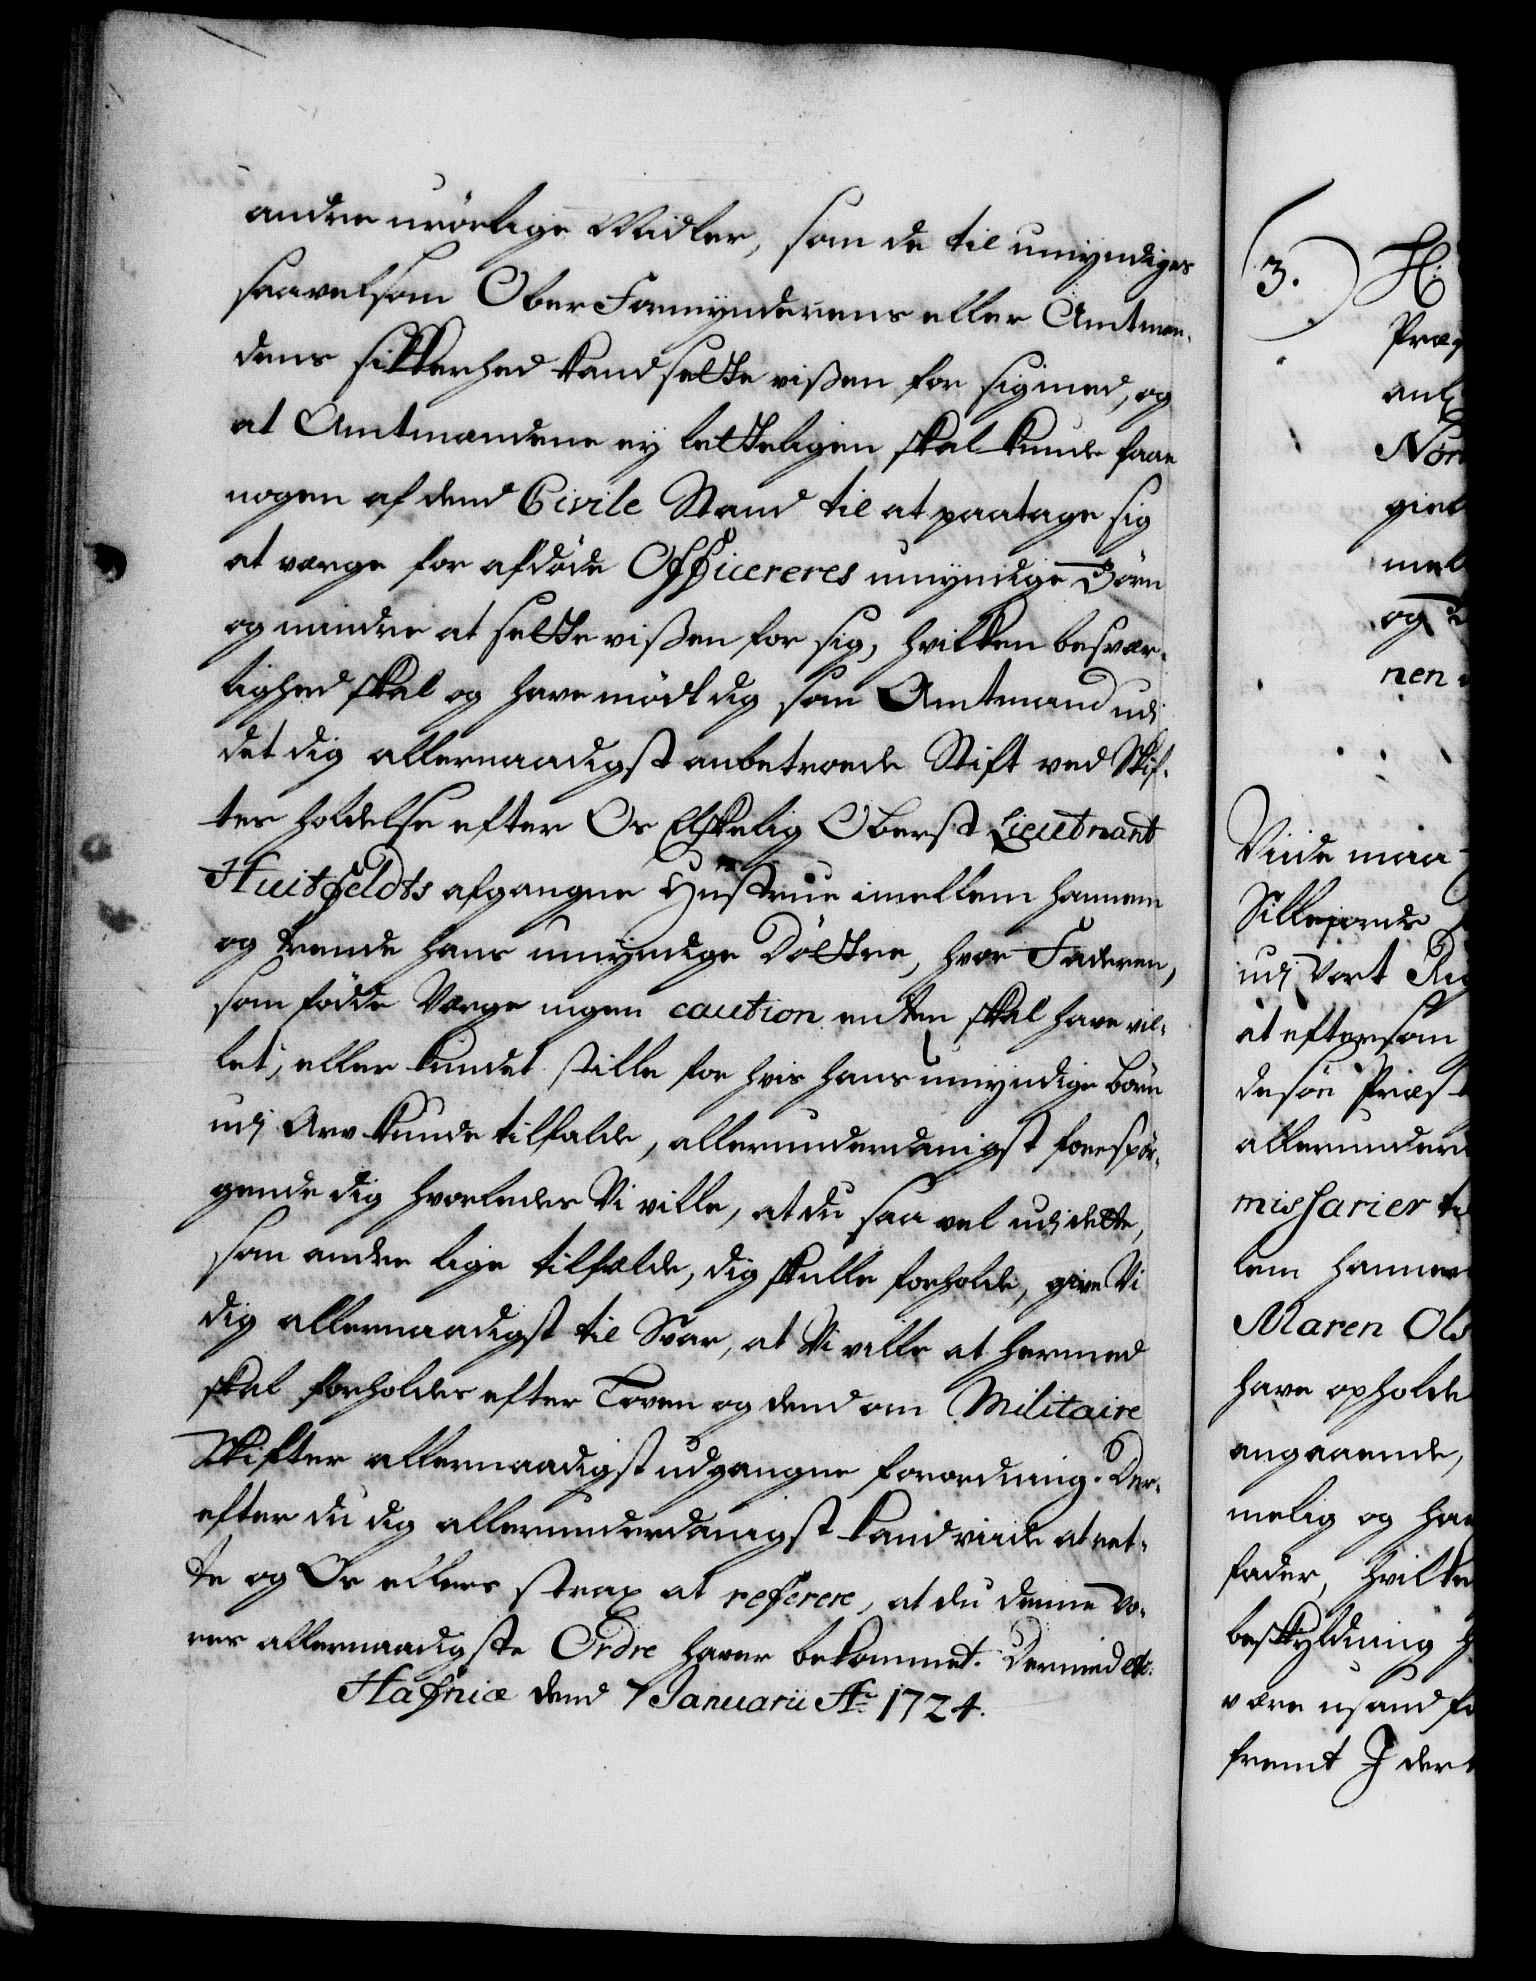 andre urörlige Midler, som de til umyndiges
saavelsom Ober Formynderens eller Amtman-
dens sikkerhed kand sette vissen for sig med, og
at Amtmændene ey letteligen skal kunde faae
nogen af dend Civile Stand til at paatage sig
at værge for afdöde Officereres umyndige Börn
og mindre at sette vissen for sig, hvilken besvær-
lighed skal og have mödt dig som Amtmand udj
det dig allernaadigst anbetroede Stift ved Skif-
tes holdelse efter Os Elskelig Oberst Lieutnant
Huitfeldts afgangne Hustrue imellem hannem
og tvende hans umyndige Döttre, hvor Faderen,
som födde Værge ingen caution enten skal have vil-
let, eller kundet stille for hvis hans umyndige börn
udj Arv kunde tilfalde, allerunderdanigst forespör-
gende dig hvorledes Vi ville, at du saa vel udj dette,
som andre lige tilfælde, dig skulle forholde, give Vi
dig allernaadigst til Svar, at Vi ville at hermed
skal forholdes efter Loven og dend om Militaire
Skifter allernaadigst udgangne forordning. Der-
efter du dig allerunderdanigst kand vide at ret-
te og Os ellers strax at referere, at du denne Vo-
res allernaadigste Ordre haver bekommet. Dermed etc.
Hafniæ dend 7 Januarii Ao 1724.
3.
H.
Præ
anl
Nor
giel
mel
og
nen
Viide maa
Sillejorde
udj Vort Rig
at eftersom
desön Præst
allerunder
missarier til
lem hannem
Maren Ols
have opholde
angaaende,
melig og ha
fader, hvilke
beskyldning
være usand fo
fremt I der